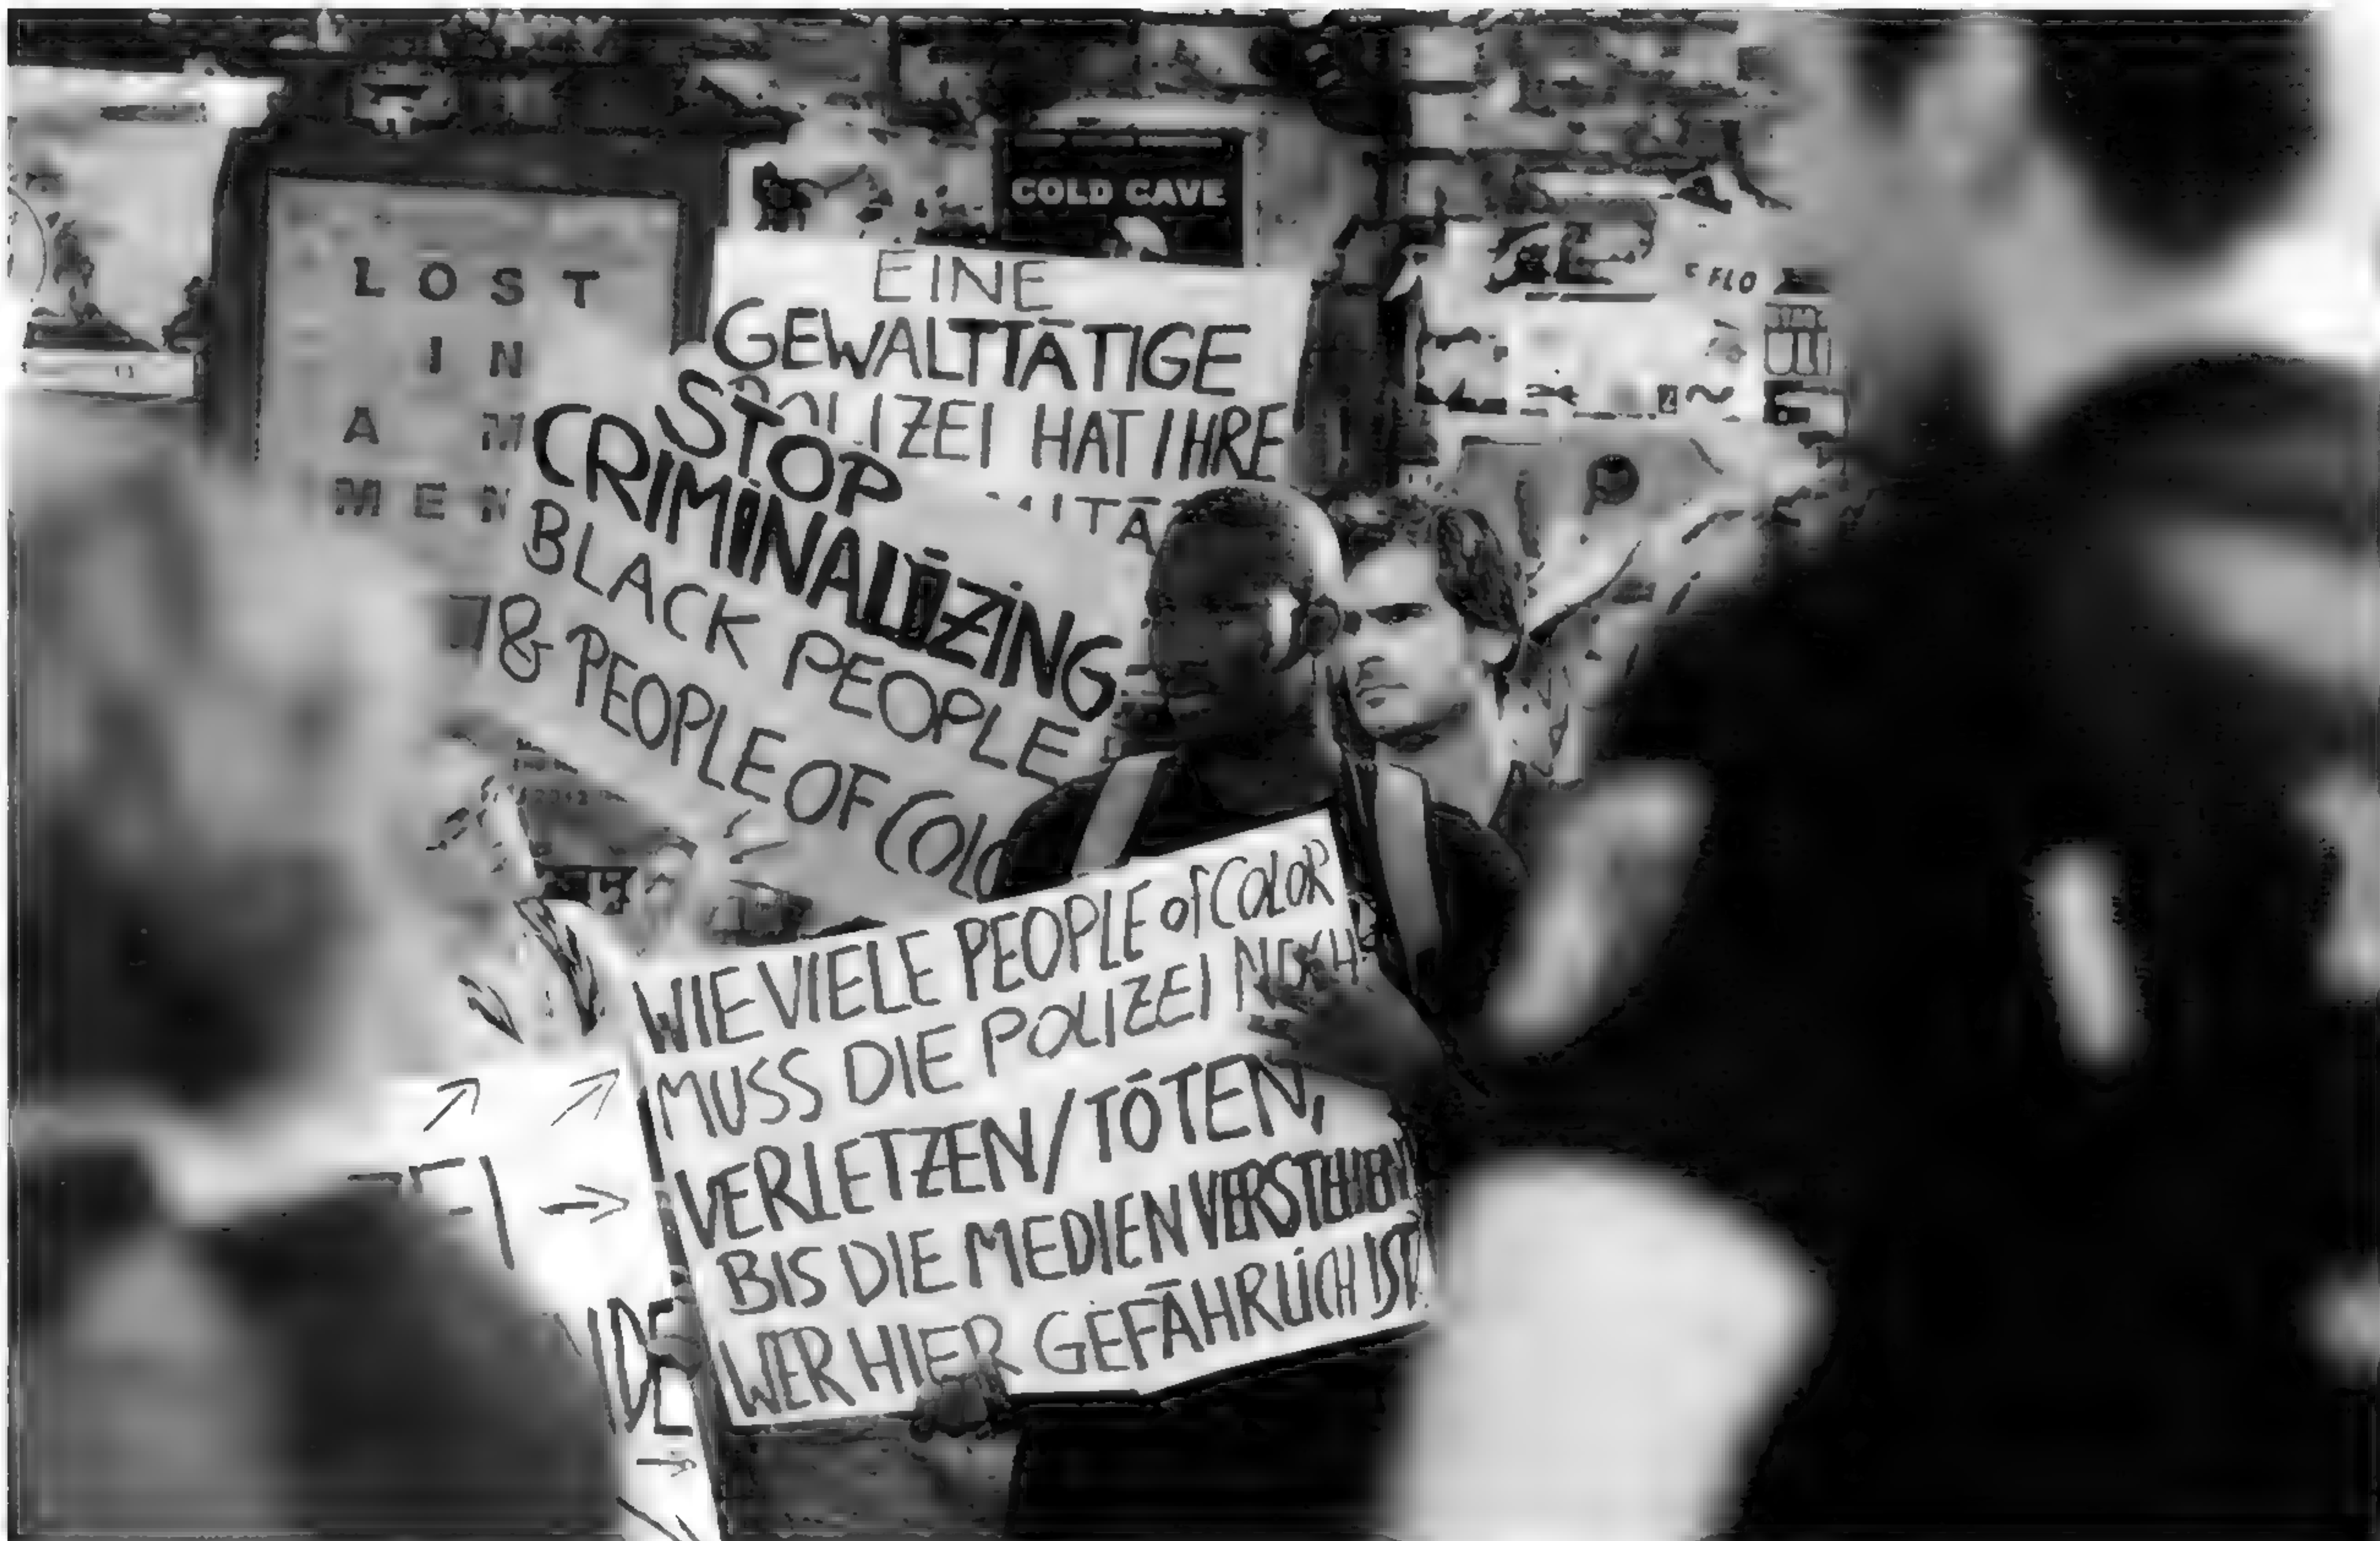 COLD CAVE
LOST
IN
A
FLO
EINE
GEWALTTÄTIGE
POLIZEI HAT IHRE
STOP
CRIMINALIZING
BLACK PEOPLE
& PEOPLE OF
WIE VIELE PEOPLE of COLOR
MUSS DIE POLIZEI NOCH
VERLETZEN/TÖTEN,
BIS DIE MEDIEN VERSTEHEN
WER HIER GEFÄHRLICH IST